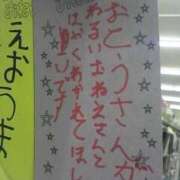 おとうさんが
わるいおねえさんと
はやくわかれてほし
いです
えおうま